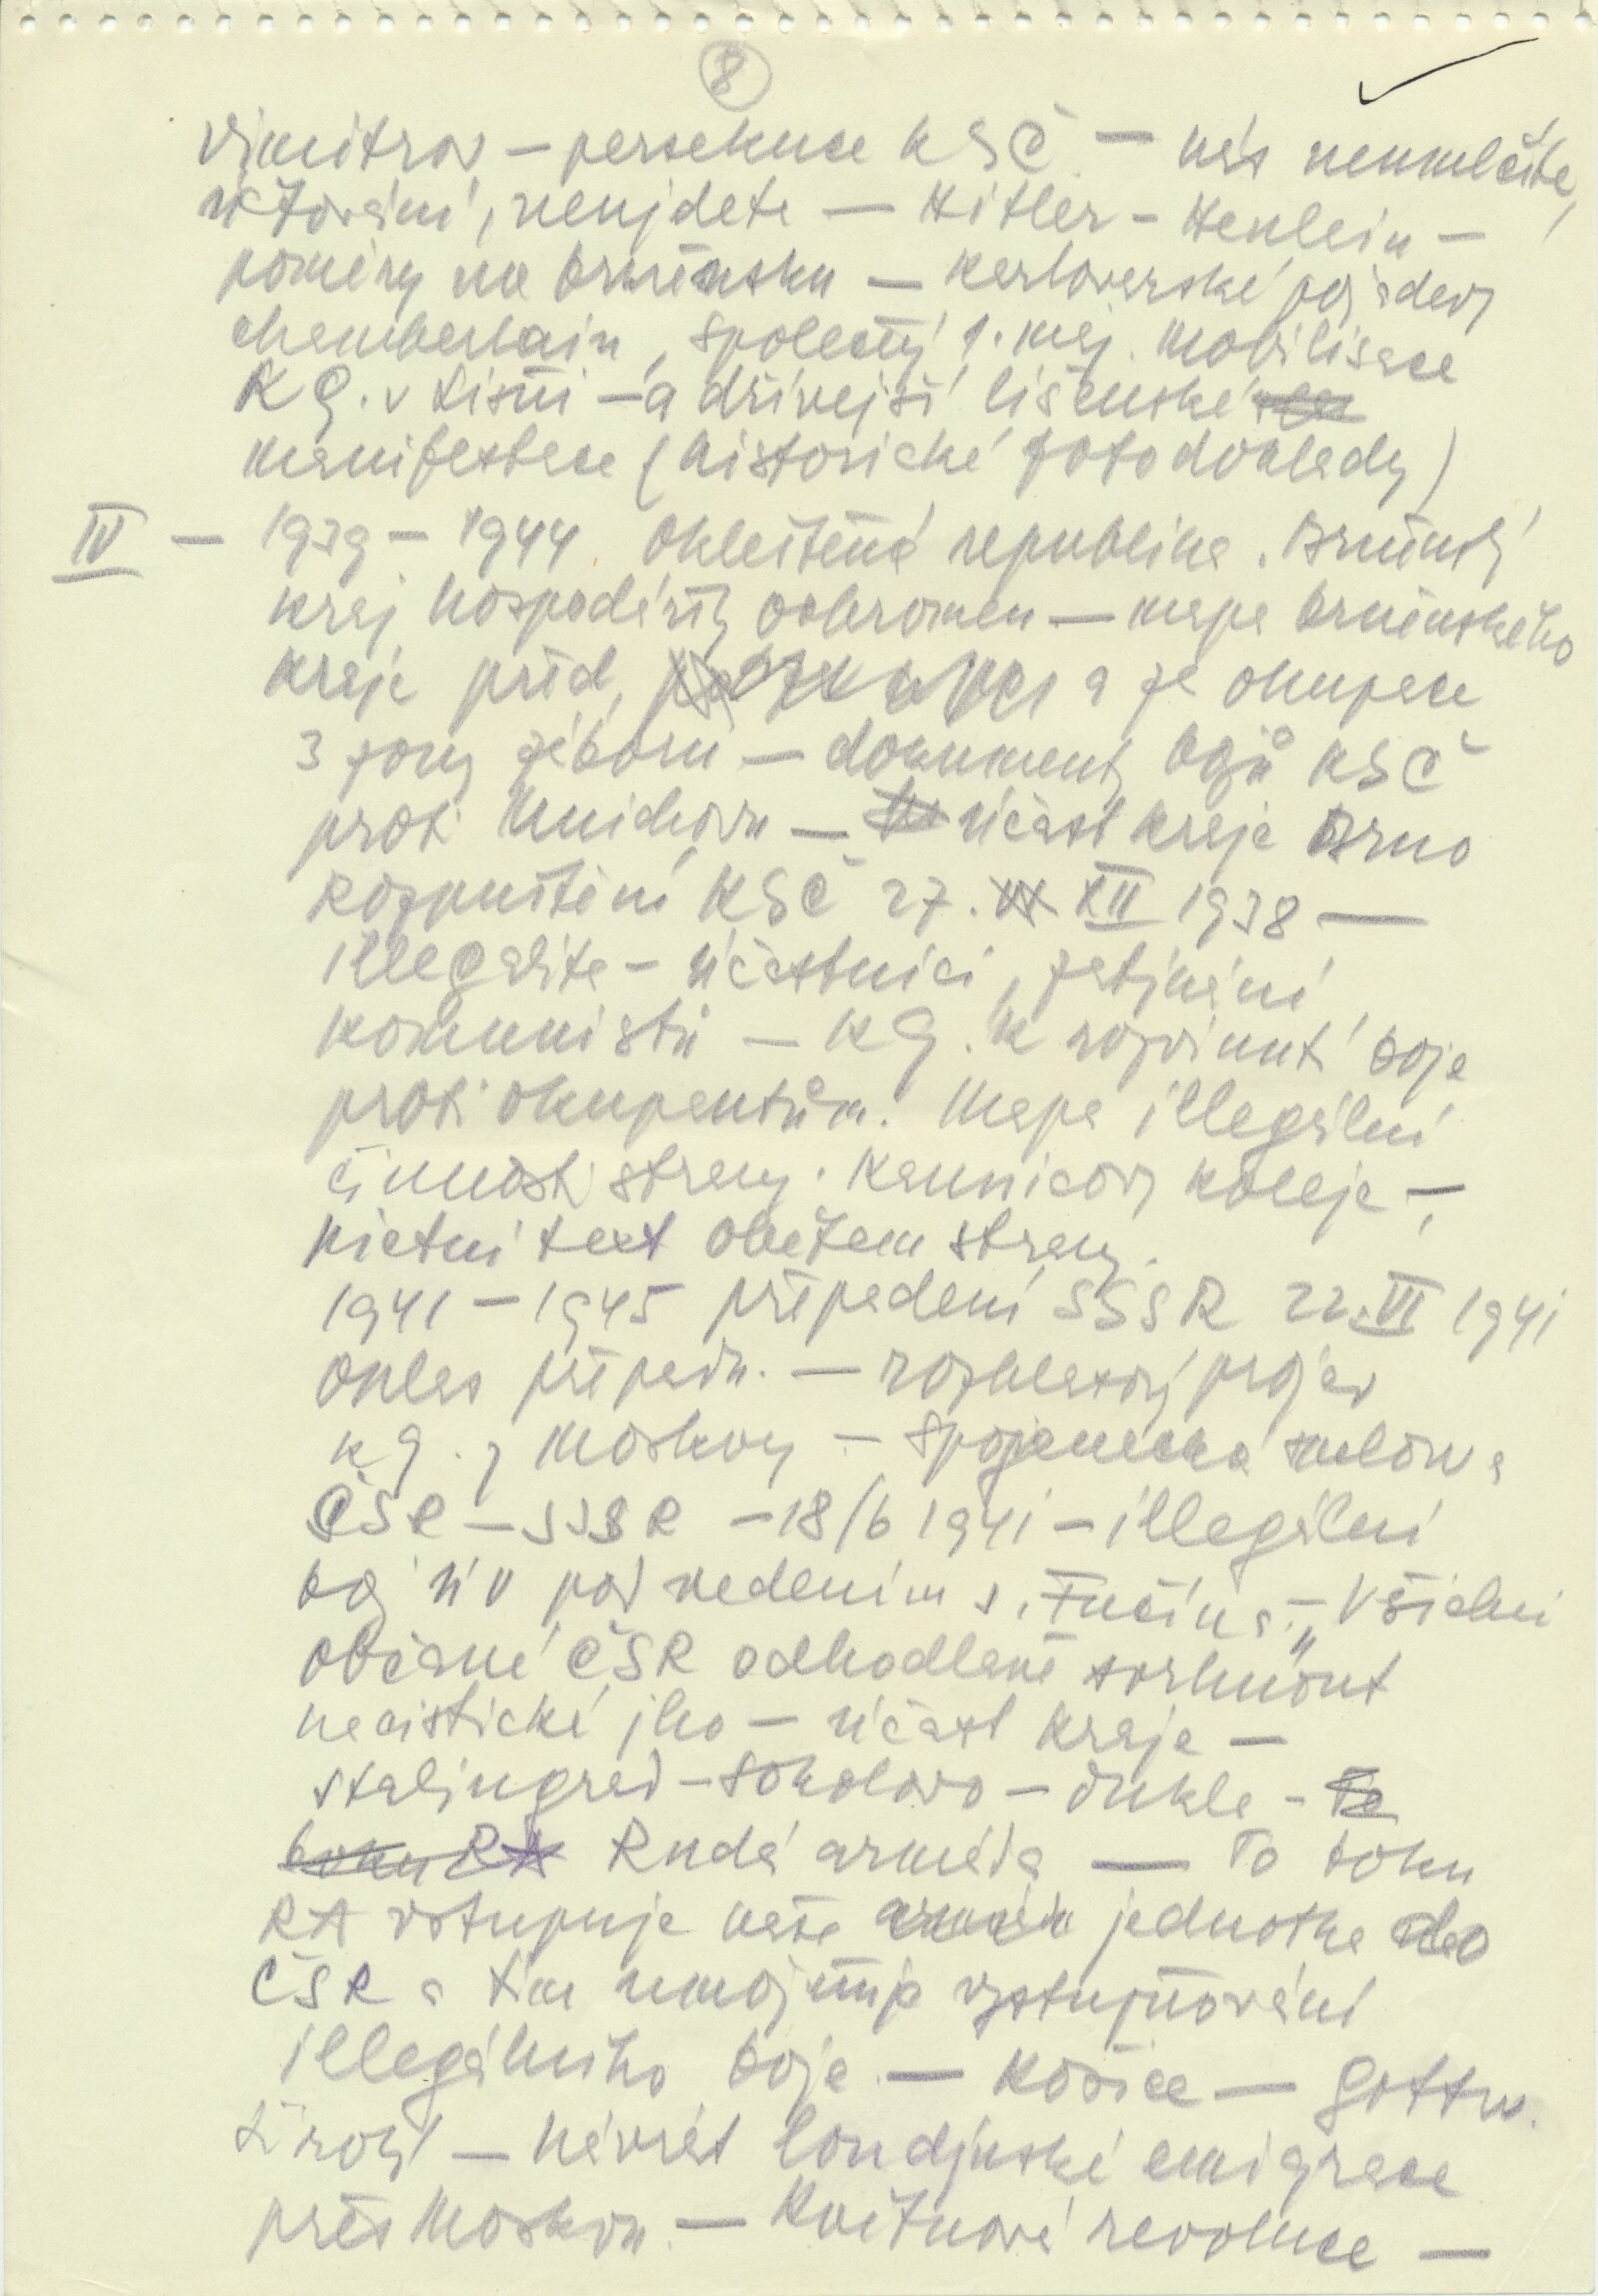 8
Dimitrov – persekuce KSČ – nás neumlčíte,
věžnění, neujdete – Hitler – Henlein –
poměry na brněnsku – karlovarské požadavky
Chamberlain, společný 1. máj. Mobilisace
KG. v Líšni – a dřívější líšeňské
manifestace (historické fotodoklady)
IV – 1939 – 1944 Okleštěná republika. Brněnský
kraj hospodářsky ochromen – mapa brněnského
kraje před, a za okupace
3 zony záboru – dokumenty bojů KSČ
proti Mnichovu – účast kraje Brno
Rozpuštění KSČ 27. XII 1938 –
illegalita – účastníci, zatýkání
komunistů – KG. k rozvinutí boje
proti okupantům. Mapa illegální
činnosti strany. Kaunicovy koleje –
pietní text obětem strany.
1941 – 1945 přepadení SSSR 22. VI 1941
Ohlas přepadu. – rozhlasový projev
KG. z Moskvy – Spojenecká smlouva
ČSR – SSSR – 18/6 1941 – illegální
boj ÚV pod vedením s. Fučíka – „Všichni
občané ČSR odhodlaně svrhnout
nacistické jho – účast kraje –
Stalingrad – Sokolovo – Dukla – Po
boku RA Rudá armáda – Po boku
RA vstupuje naše jednotka do
ČSR a tím umožňuje vystupňování
illegálního boje – Košice – Gottw.
Široký – návrat londýnské emigrace
přes Moskvu – Květnová revoluce –